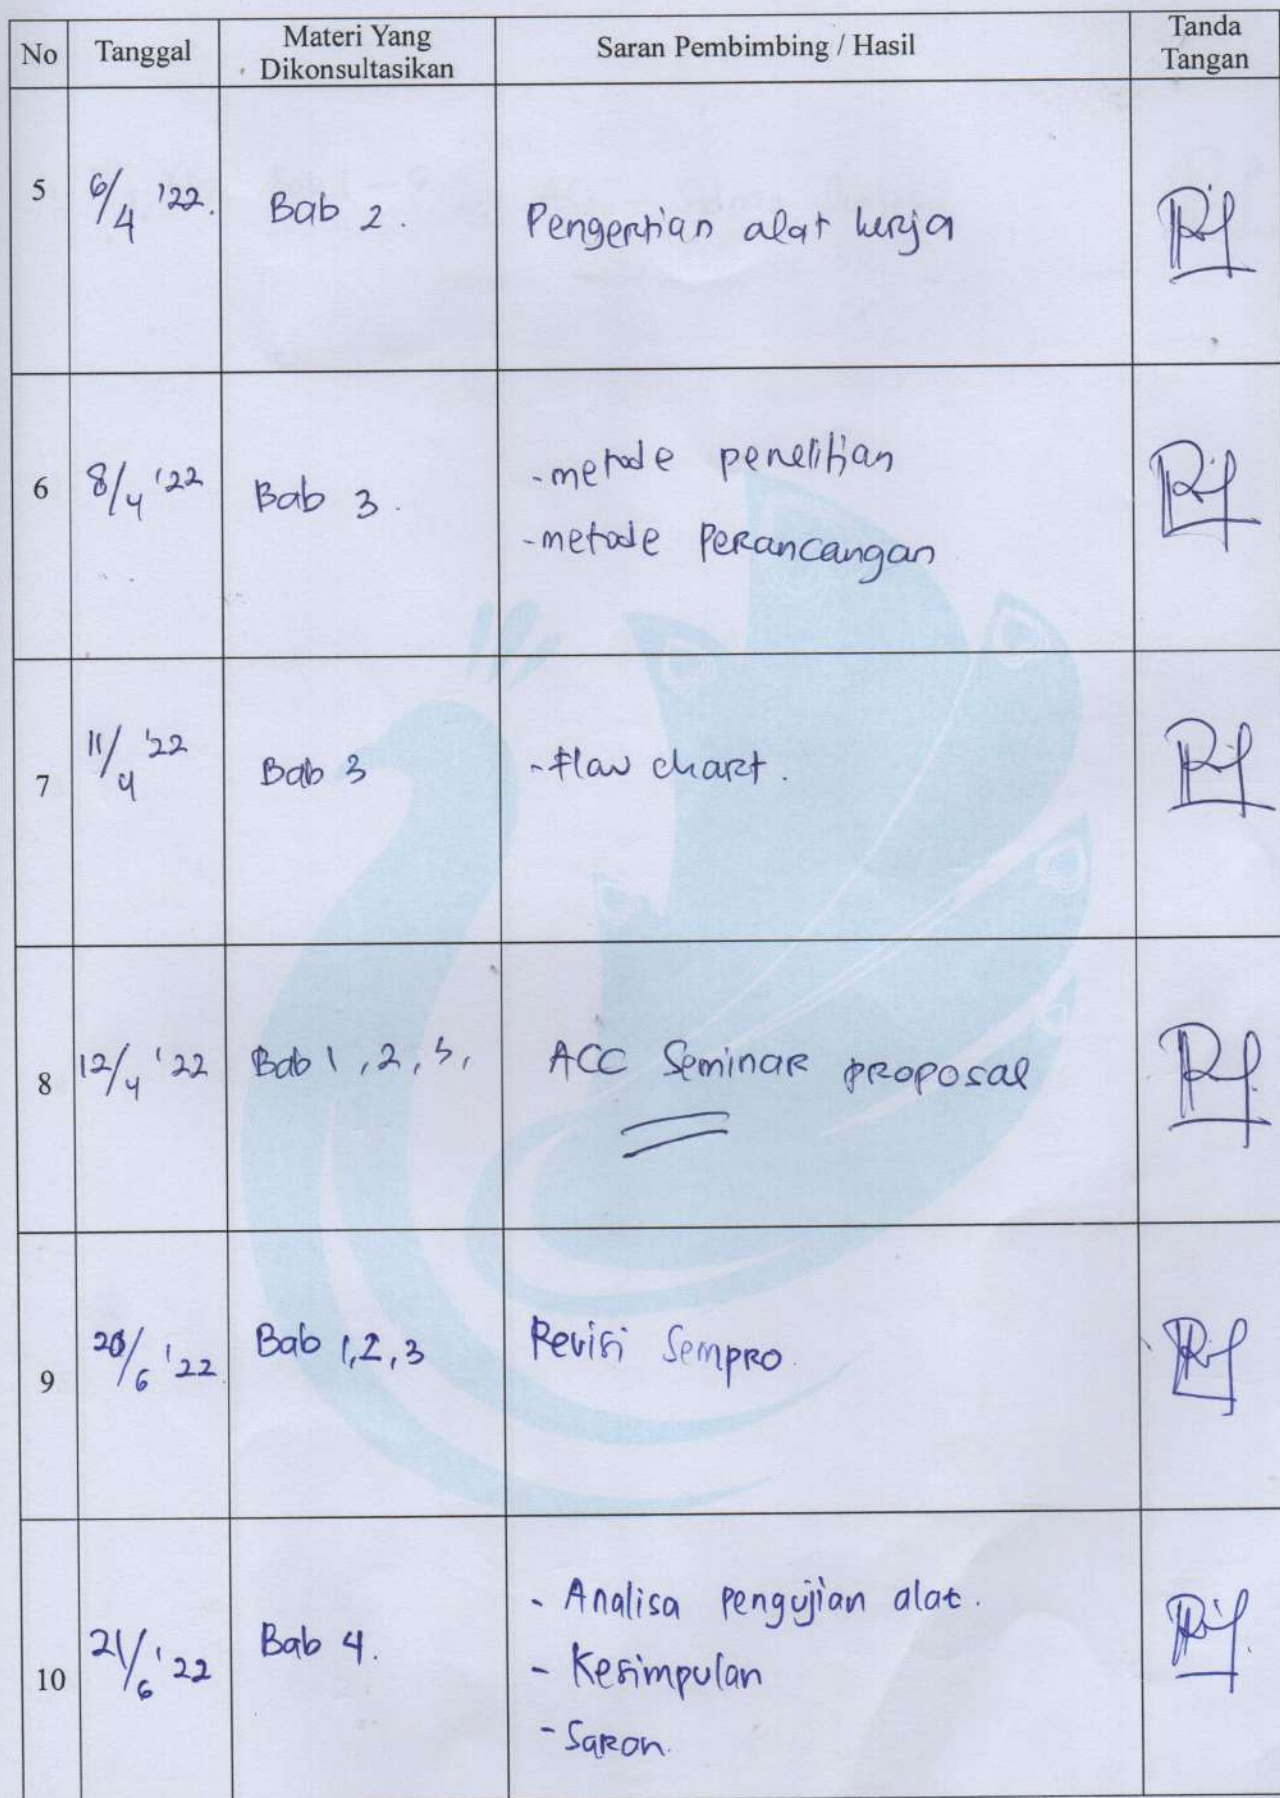 No Tanggal Materi Yang Dikonsultasikan Saran Pembimbing / Hasil Tanda Tangan
5 6/4 '22. Bab 2. Pengertian alat kerja
6 8/4 '22 Bab 3. -metode penelitian
-metode Perancangan
7 11/4 '22 Bab 3 -Flow chart.
8 12/4 '22 Bab 1, 2, 3, ACC Seminar proposal
9 20/6 '22 Bab 1,2,3 Revisi Sempro.
10 21/6 '22 Bab 4. - Analisa pengujian alat.
- Kesimpulan
- Saran.